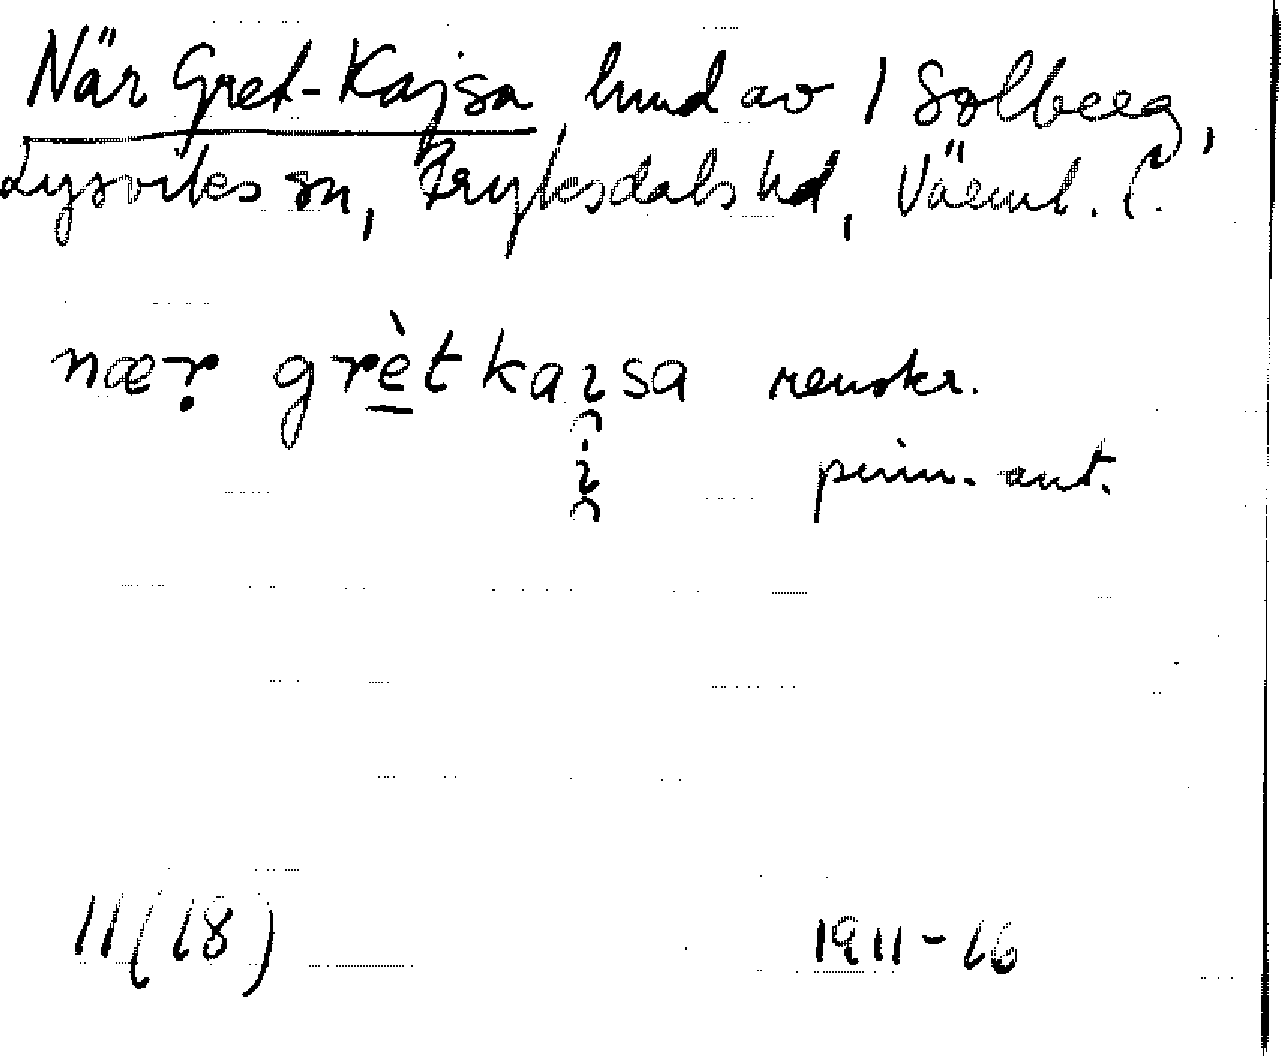 När Gret-Kajsa, hmd av 1 Solberg,
Lysviks sn, Fryksdals hd, Värml. l.
nær grètkaısa renskr.
prim. ant.
11(18) 1911-16